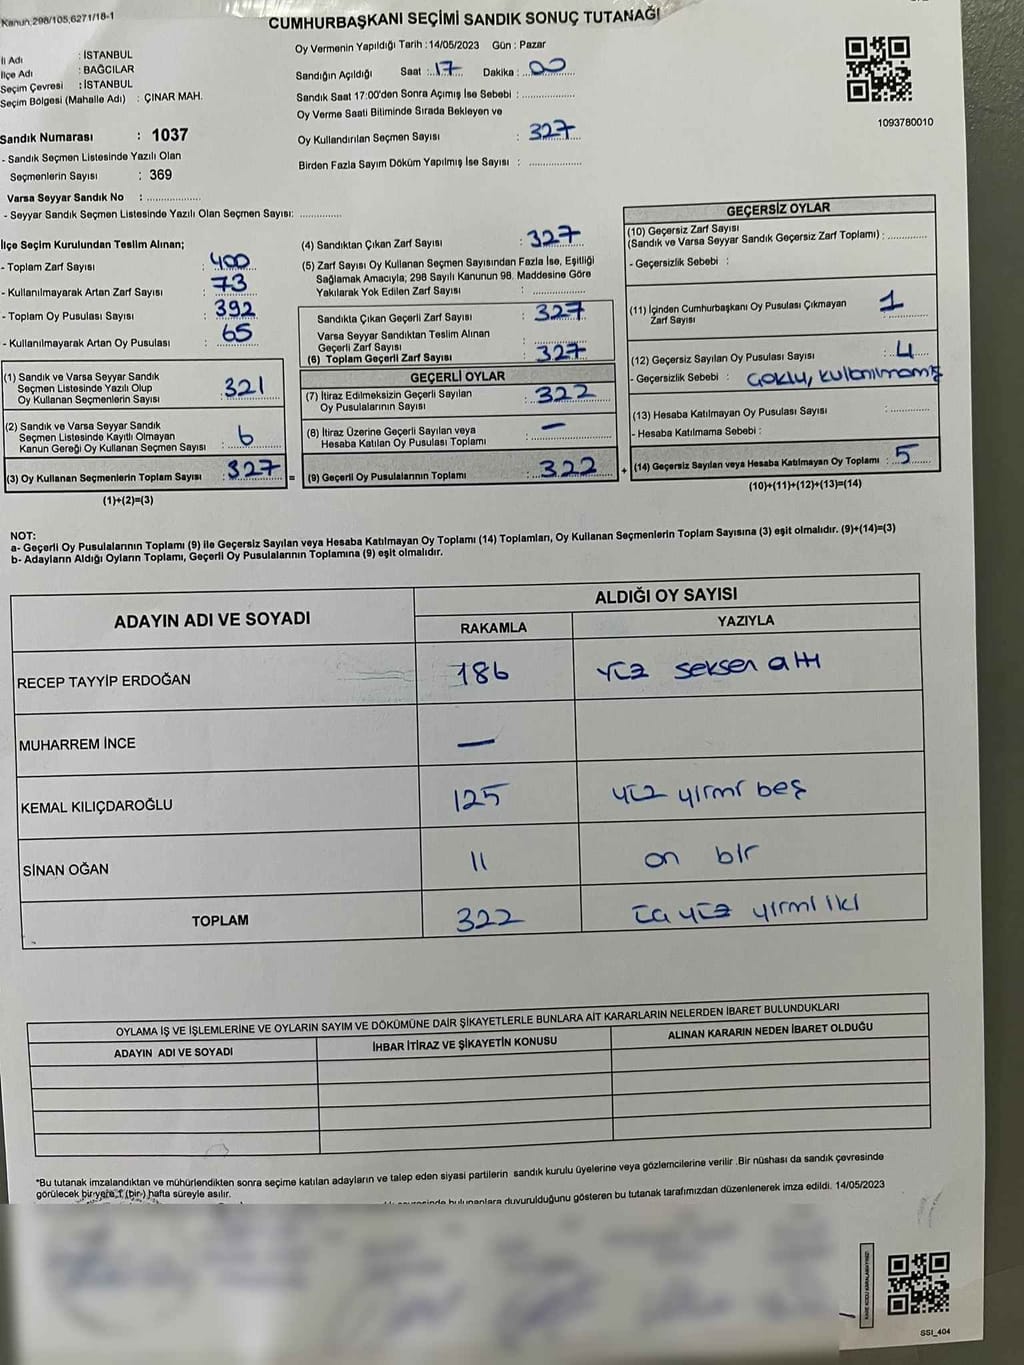 Kanun;298/105,6271/18-1
CUMHURBAŞKANI SEÇİMİ SANDIK SONUÇ TUTANAĞI
İl Adı : İSTANBUL
İlçe Adı : BAĞCILAR
Seçim Çevresi : İSTANBUL
Seçim Bölgesi (Mahalle Adı) : ÇINAR MAH.
Sandık Numarası : 1037
- Sandık Seçmen Listesinde Yazılı Olan
Seçmenlerin Sayısı : 369
Varsa Seyyar Sandık No : ..................
- Seyyar Sandık Seçmen Listesinde Yazılı Olan Seçmen Sayısı: ..............
Oy Vermenin Yapıldığı Tarih :14/05/2023 Gün : Pazar
Sandığın Açıldığı Saat : 17 Dakika : 00
Sandık Saat 17:00'den Sonra Açımış İse Sebebi : ..................
Oy Verme Saati Bitiminde Sırada Bekleyen ve
Oy Kullandırılan Seçmen Sayısı : 327
Birden Fazla Sayım Döküm Yapılmış İse Sayısı : ..................
1093780010
İlçe Seçim Kurulundan Teslim Alınan;
- Toplam Zarf Sayısı : 400
- Kullanılmayarak Artan Zarf Sayısı : 73
- Toplam Oy Pusulası Sayısı : 392
- Kullanılmayarak Artan Oy Pusulası : 65
(1) Sandık ve Varsa Seyyar Sandık
Seçmen Listesinde Yazılı Olup
Oy Kullanan Seçmenlerin Sayısı : 321
(2) Sandık ve Varsa Seyyar Sandık
Seçmen Listesinde Kayıtlı Olmayan
Kanun Gereği Oy Kullanan Seçmen Sayısı : 6
(3) Oy Kullanan Seçmenlerin Toplam Sayısı : 327 =
(1)+(2)=(3)
(4) Sandıktan Çıkan Zarf Sayısı : 327
(5) Zarf Sayısı Oy Kullanan Seçmen Sayısından Fazla İse, Eşitliği
Sağlamak Amacıyla, 298 Sayılı Kanunun 98. Maddesine Göre
Yakılarak Yok Edilen Zarf Sayısı : ..................
Sandıkta Çıkan Geçerli Zarf Sayısı : 327
Varsa Seyyar Sandıktan Teslim Alınan
Geçerli Zarf Sayısı :
(6) Toplam Geçerli Zarf Sayısı : 327
GEÇERLİ OYLAR
(7) İtiraz Edilmeksizin Geçerli Sayılan
Oy Pusulalarının Sayısı : 322
(8) İtiraz Üzerine Geçerli Sayılan veya
Hesaba Katılan Oy Pusulası Toplamı : —
(9) Geçerli Oy Pusulalarının Toplamı : 322 +
GEÇERSİZ OYLAR
(10) Geçersiz Zarf Sayısı
(Sandık ve Varsa Seyyar Sandık Geçersiz Zarf Toplamı) : ............
- Geçersizlik Sebebi :
(11) İçinden Cumhurbaşkanı Oy Pusulası Çıkmayan
Zarf Sayısı : 1
(12) Geçersiz Sayılan Oy Pusulası Sayısı : 4
- Geçersizlik Sebebi : Çoklu, kullanılmamış
(13) Hesaba Katılmayan Oy Pusulası Sayısı : ............
- Hesaba Katılmama Sebebi :
(14) Geçersiz Sayılan veya Hesaba Katılmayan Oy Toplamı : 5
(10)+(11)+(12)+(13)=(14)
NOT:
a- Geçerli Oy Pusulalarının Toplamı (9) ile Geçersiz Sayılan veya Hesaba Katılmayan Oy Toplamı (14) Toplamları, Oy Kullanan Seçmenlerin Toplam Sayısına (3) eşit olmalıdır. (9)+(14)=(3)
b- Adayların Aldığı Oyların Toplamı, Geçerli Oy Pusulalarının Toplamına (9) eşit olmalıdır.
ADAYIN ADI VE SOYADI
ALDIĞI OY SAYISI
RAKAMLA YAZIYLA
RECEP TAYYİP ERDOĞAN 186 yüz seksen altı
MUHARREM İNCE —
KEMAL KILIÇDAROĞLU 125 yüz yirmi beş
SİNAN OĞAN 11 on bir
TOPLAM 322 üç yüz yirmi iki
OYLAMA İŞ VE İŞLEMLERİNE VE OYLARIN SAYIM VE DÖKÜMÜNE DAİR ŞİKAYETLERLE BUNLARA AİT KARARLARIN NELERDEN İBARET BULUNDUKLARI
ADAYIN ADI VE SOYADI İHBAR İTİRAZ VE ŞİKAYETİN KONUSU ALINAN KARARIN NEDEN İBARET OLDUĞU
*Bu tutanak imzalandıktan ve mühürlendikten sonra seçime katılan adayların ve talep eden siyasi partilerin sandık kurulu üyelerine veya gözlemcilerine verilir .Bir nüshası da sandık çevresinde
görülecek bir yere 1 (bir) hafta süreyle asılır.
bulunanlara duyurulduğunu gösteren bu tutanak tarafımızdan düzenlenerek imza edildi. 14/05/2023
SSI_404